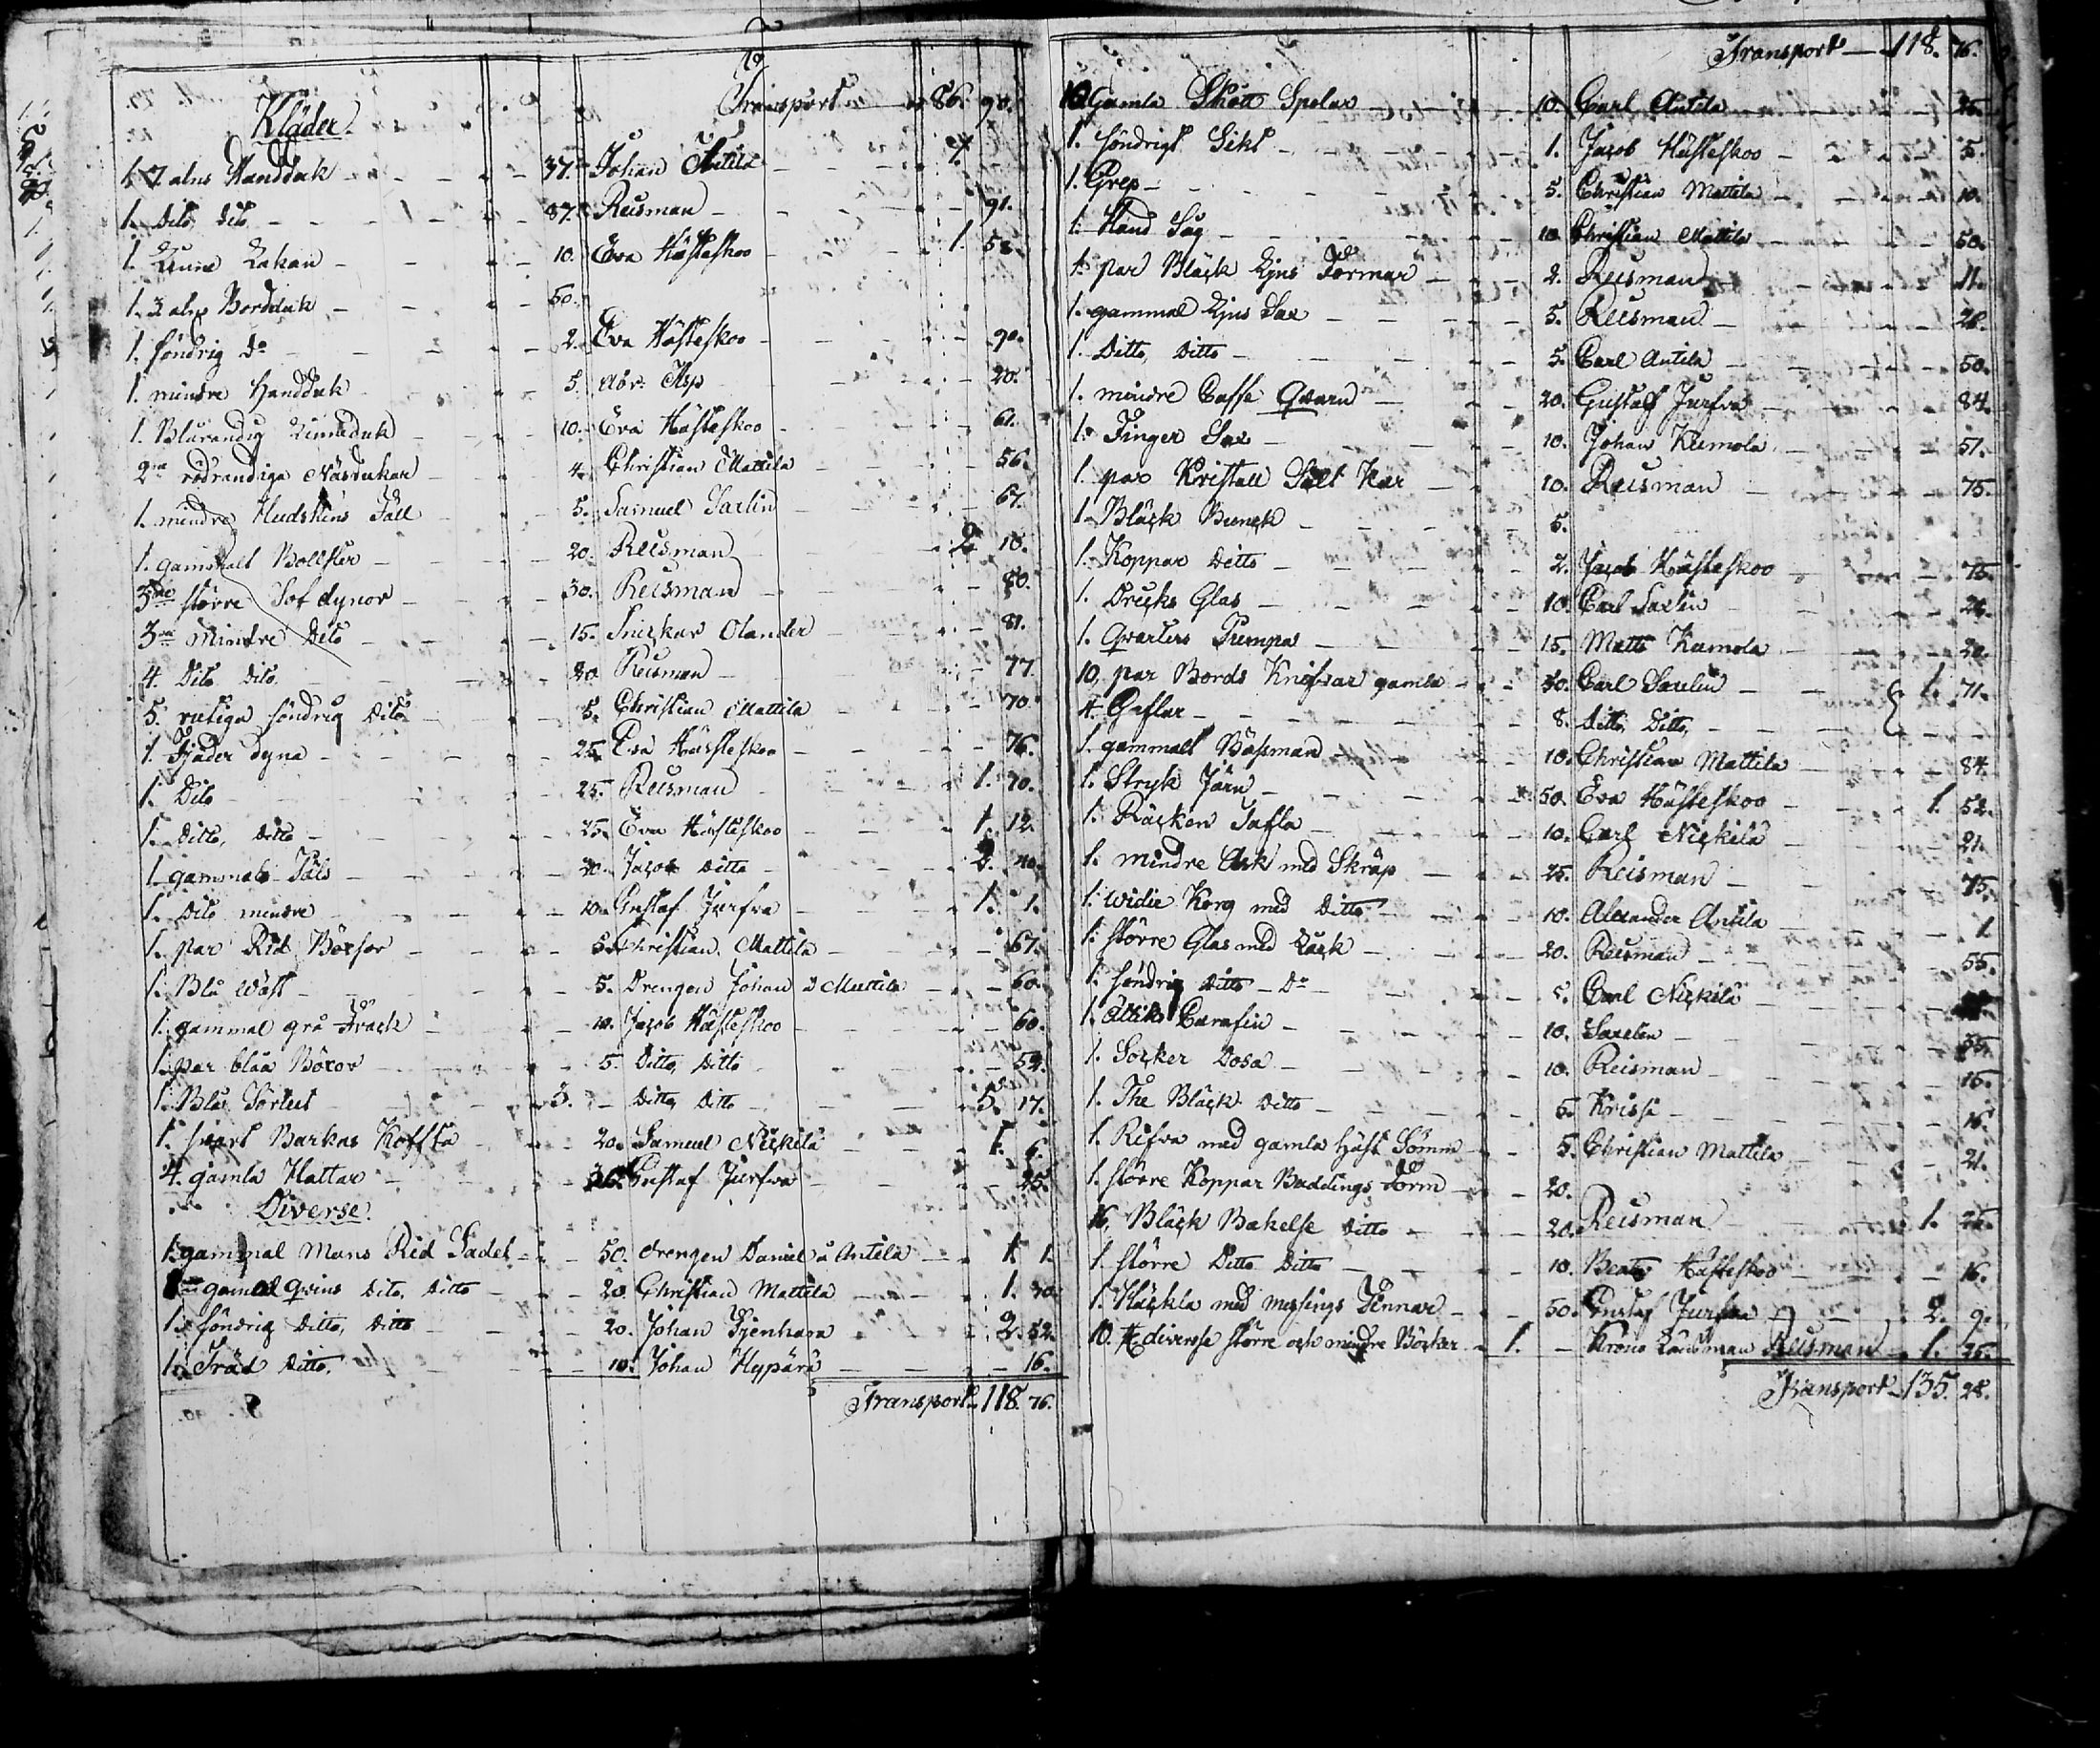 Transport 86. 90.
Kläder.
1. 7 alns Handduk 37. Johan Antila 1.
1. Dito, Dito 37. Reisman 91.
1. Linne Lakan 10. Eva Hästeskoo 1. 58.
1. 3 alns Bordduk 50.
1. söndrig Do 2. Eva Hästeskoo 90.
1. mindre Handduk 5. Abr: Asp 20.
1. Blårandig Linneduk 10. Eva Hästeskoo 61.
2ne rödrandiga Näsdukar 4. Christian Mattila 56.
1. mindre Hudskins Fäll 5. Samuel Sarlin 67.
1. gammalt Bollster 20. Reisman 2. 10.
3ne större Sof dynor 30. Reisman 80.
3ne Mindre Dito 15. Snickar Olander 81.
4. Dito Dito 20. Reisman 77.
5. rutiga söndrig Dito 5. Christian Mattila 70.
1. Fjäder dyna 25. Eva Hästeskoo 76.
1. Dito 25. Reisman 1. 70.
1. Ditto, Ditto 25. Eva Hästeskoo 1. 12.
1. gammal Päls 20. Jacob Ditto 2. 40.
1. Dito mindre 10. Gustaf Jurfva 1. 1.
1. par Rid Böxsor 5. Christian Mattila 67.
1. Blå Wäst 5. Drengen Johan å Mattila 60.
1. gammal grå Frack 10. Jacob Hästeskoo 60.
1. par blåa Böxor 5. Ditto, Ditto 52.
1. Blå Sortut 3. Ditto, Ditto 5. 17.
1. svart Barkas Koffta 20. Samuel Nickilä 1. 6.
4. gamla Hattar Gustaf Jurfva 25.
Diverse.
1. gammal Mans Rid Sadel 50. drengen Daniel å Antila 1. 1.
gamal Qvins Dito, Ditto 20. Christian Mattila 1. 70.
1. söndrig Ditto, Ditto 20. Johan 2. 52.
1. Träd Ditto. 10. Johan Hypärä 16.
Transport 118. 76.
Transport 118. 76.
10. Gamla Skott Spolar 10. Carl Antila 25.
1. söndrigt Sikt 1. Jacob Hästeskoo 5.
1. Grep 5. Christian Mattila 10.
1. Hand Såg 10. Christian Mattila 50.
1. par Bläck Ljus Formar 2. Reisman 11.
1. gammal Ljus Sax 5. Reisman 28.
1. Ditto, Ditto 5. Carl Antila 50.
1. mindre Caffe Qvarn 20. Gustaf Jurfva 84.
1. Finger Sax 10. Johan Kumola 51.
1. par Kristall Salt Kar 10. Reisman 75.
1. Bläck 5.
1. Koppar Ditto 2. Jacob Hästeskoo 75.
1. Dricks Glas 10. Carl Saxlin 26.
1. Qvarters Pumpa 15. Matts Kumola 20.
10. par Bords Knifvar gamla 50. Carl Saxelin 1. 71.
4. Gaflar 8. Ditto, Ditto,
1. gammalt Bässman 10. Christian Mattila 84.
1. Stryk Järn 50. Eva Hästeskoo 1. 52.
1. Räcken Tafla 10. Carl Nickilä 21.
1. mindre Ask med Skräp 25. Reisman 75.
1. widie Korg med Ditto 10. Alexander Antila 1.
1. större Glas med Läck 20. Reisman 55.
1. söndrig Ditto Do 5. Carl Nickilä
1. Ättiks Carafin 10. Saxelin 35.
1. Socker Dosa 10. Reisman 15.
1. The Bläck Ditto 5. Krissi 16.
1. Rifva med gamla Häst Sömm 5. Christian Mattila 21.
1. större Koppar Buddings Form 20.
16. Bläck Bakelse Ditto 20. Reisman 1. 25.
1. större Ditto Ditto 10. Beata Hästeskoo 16.
1. Häckla med messings Pinnar 50. Gustaf Jurfva 2. 9.
10. diverse större och mindre Böcker 1. Krono Länsman Reisman 1. 25.
Transport 135. 28.